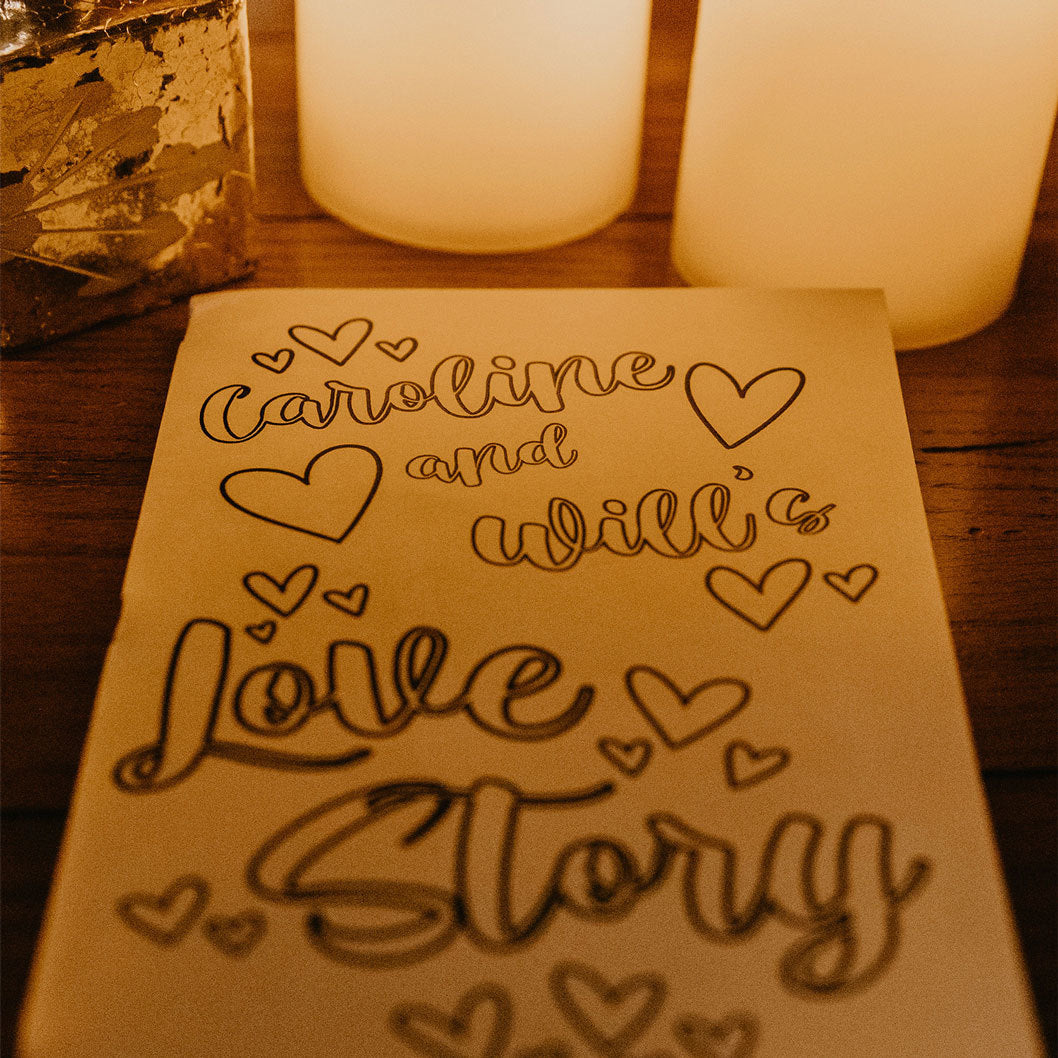 Caroline
and
Will's
Love
Story